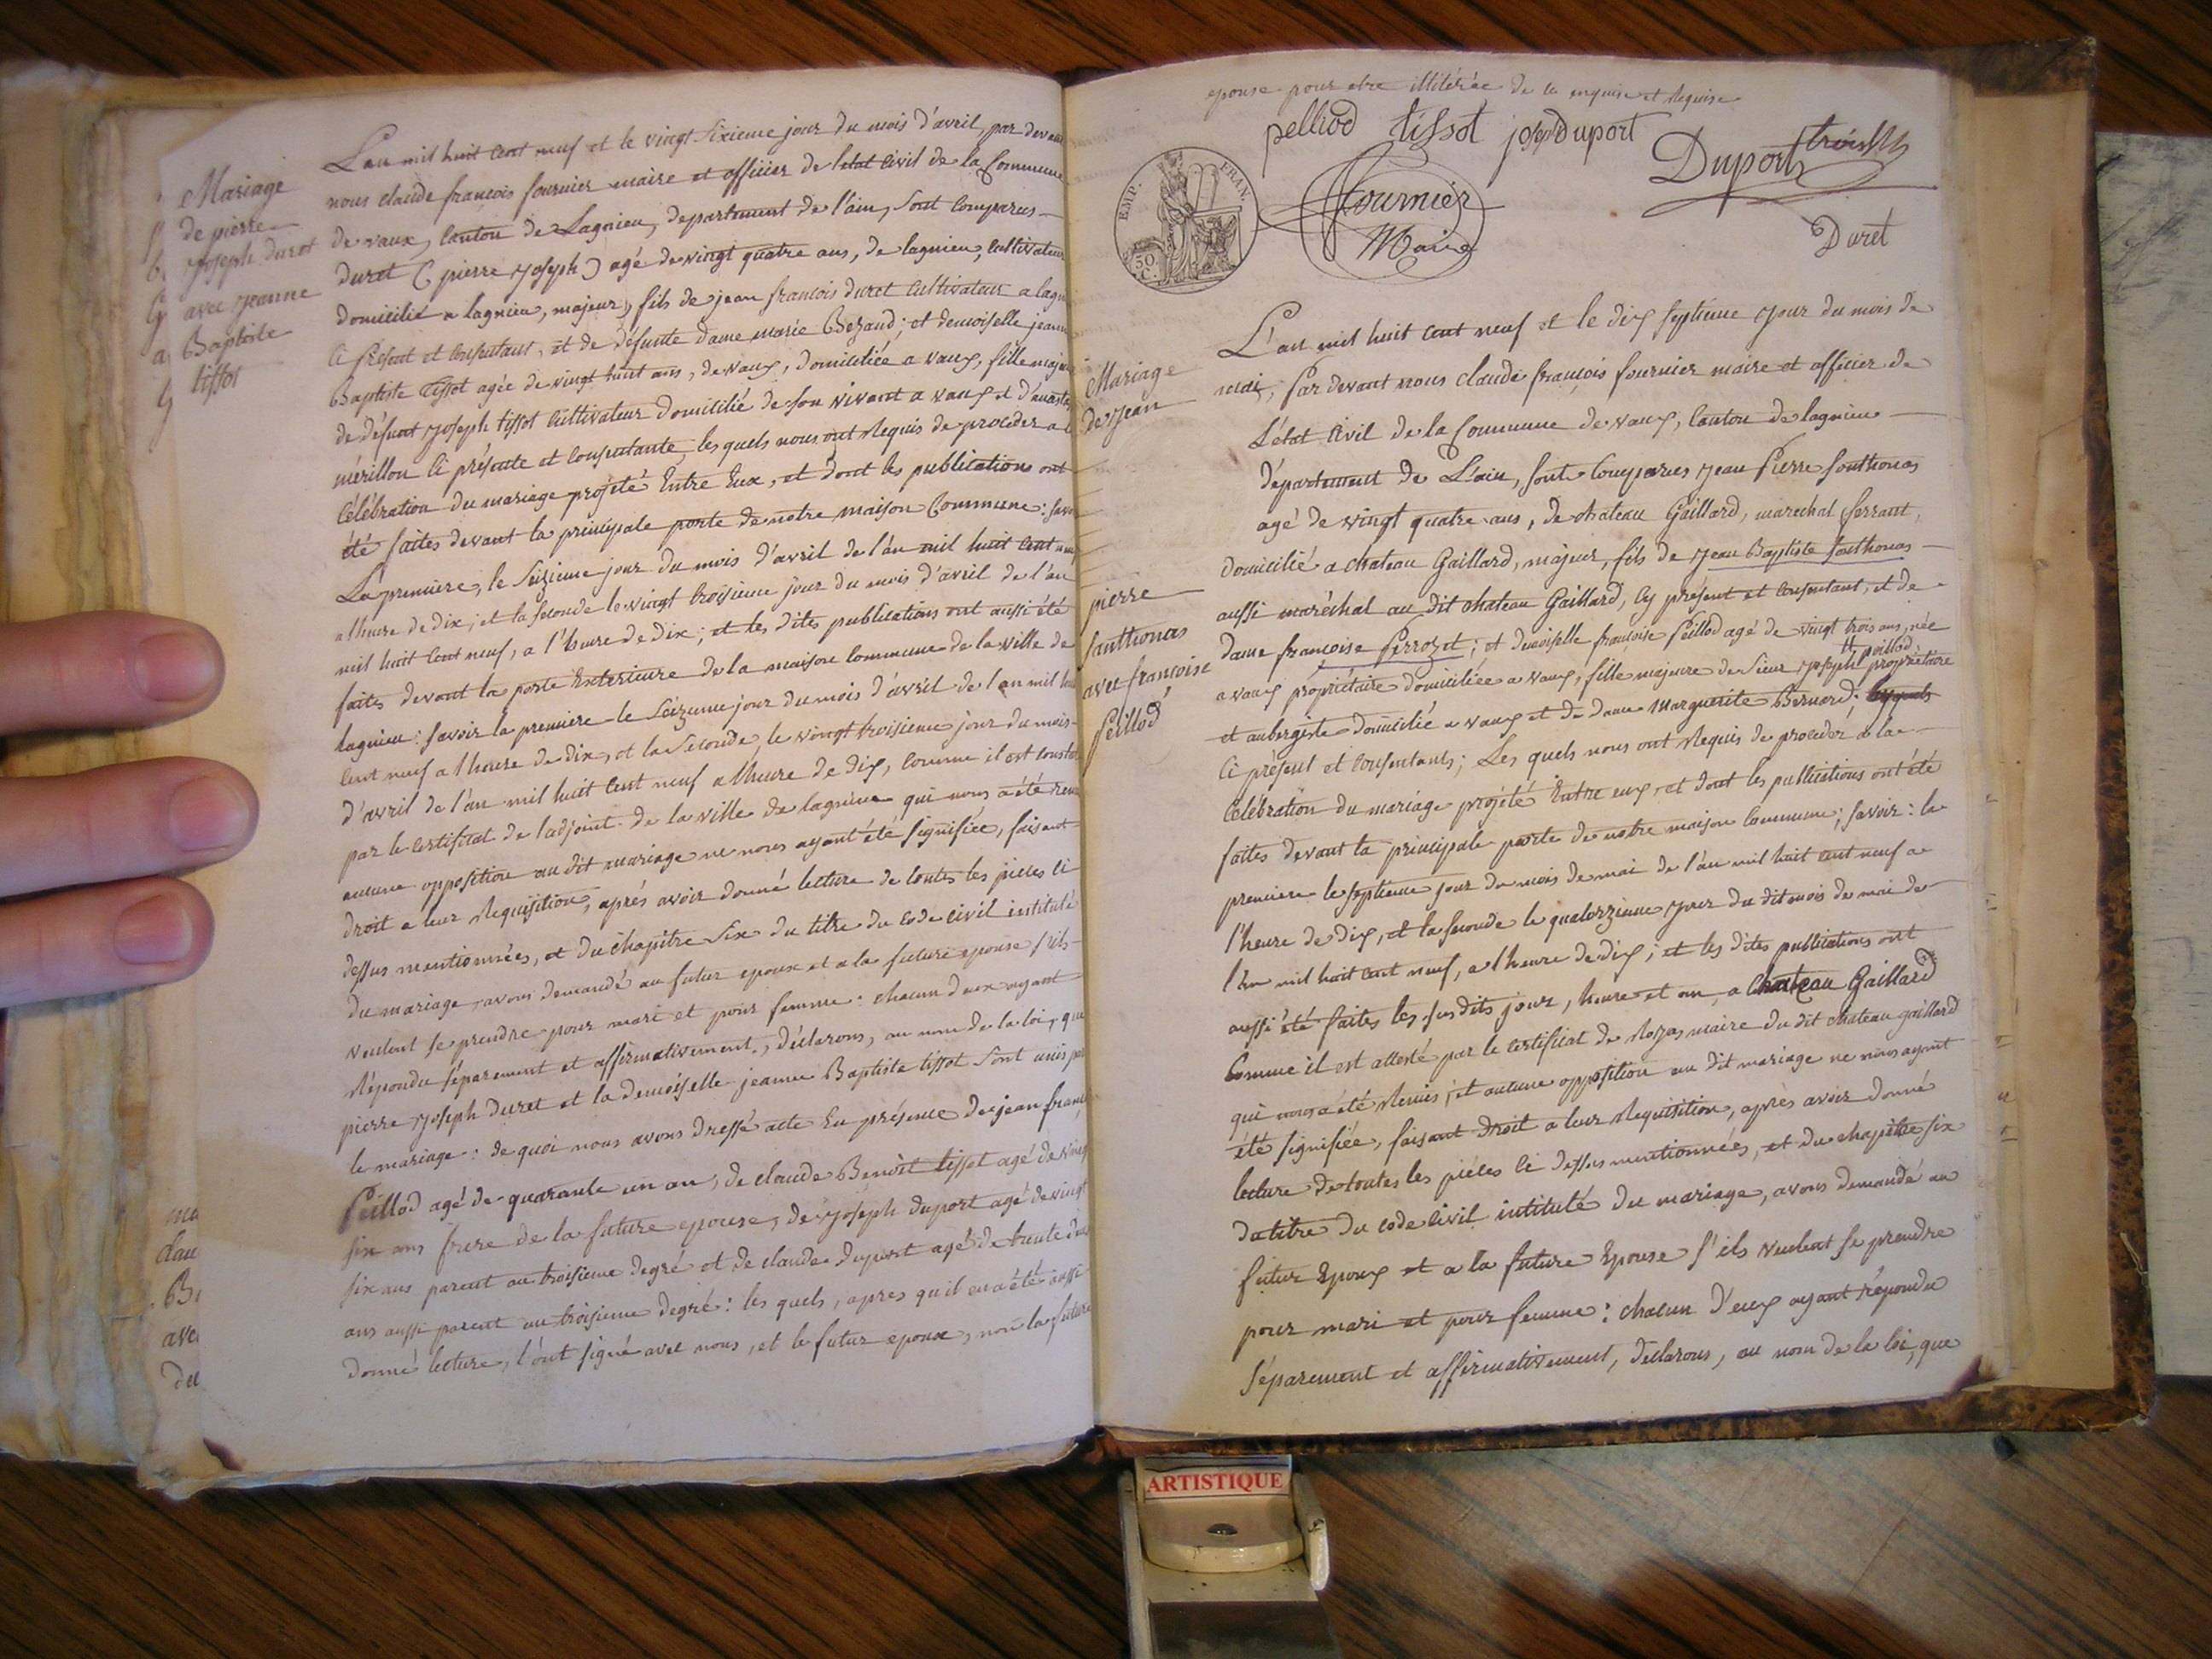 Mariage
de pierre
Joseph duret
avec jeanne
Baptiste
tissot
L'an mil huit cent neuf et le vingt sixieme jour du mois d'avril, par devant
nous claude françois fournier maire et officier de letat civil de la Commune
de vaux, canton de Lagnieu, departement de l'ain, sont comparus
duret (pierre joseph) agé de vingt quatre ans, de lagnieu, cultivateur
domicilié a lagnieu, majeur, fils de jean francois duret cultivateur a lagn
ci présent et consentant, et de défunte dame marie Bezand; et demoiselle jeanne
Baptiste tissot agée de vingt huit ans, de vaux, domiciliée a vaux, fille majeure
de défunt joseph tissot cultivateur domicilié de son vivant a vaux et d'
mérillon ci présente et consentante, les quels nous ont requis de proceder a l
célébration du mariage projeté entre eux, et dont les publications ont
été faites devant la principale porte de notre maison commune: savoir
La première, le seizieme jour du mois d'avril de l'an mil huit cent neuf
a lheure de dix, et la seconde le vingt troisieme jour du mois d'avril de l'an
mil huit cent neuf, a l'heure de dix; et les dites publications ont aussi été
faites devant la porte exterieure de la maison commune de la ville de
lagnieu: savoir la premiere le seizieme jour du mois d'avril de l'an mil huit
cent neuf a lheure de dix, et la seconde, le vingt troisieme jour du mois
d'avril de l'an mil huit cent neuf a lheure de dix, comme il est constaté
par le certificat de l'adjoint de la ville de lagnieu qui nous a été remis
aucune opposition au dit mariage ne nous ayant été signifiée, faisant
droit a leur requisition, aprés avoir donné lecture de toutes les pièces ci
dessus mentionnées, et du chapitre six du titre du code civil intitulé
du mariage, avons demandé au futur epoux et a la future epouse s'ils
veulent se prendre pour mari et pour femme: chacun deux ayant
répondu séparement et affirmativement, déclarons, au nom de la loi, que
pierre joseph duret et la demoiselle jeanne Baptiste tissot sont unis par
le mariage: de quoi nous avons dressé acte en présence de jean franc
Peillod agé de quarante un an, de claude Benoit tissot agé de vingt
six ans frere de la future epouse, de joseph duport agé de vingt
six ans parent au troisieme degré et de claude duport agé de trente
ans aussi parent au troisieme degré: les quels, apres qu'il en a été aussi
donné lecture, l'ont signé avec nous, et le futur epoux, non la future
ma
clau
B
ave
du
epouse pour etre illitérée de ce enquise et requise
pelliod tissot josep Duport
Duport
EMP. FRAN.
50 C.
Fournier
Maire
Duret
Mariage
de jean
pierre
santhonas
avec françoise
Peillod
L'an mil huit cent neuf et le dix septieme jour du mois de
mai, par devant nous claude françois fournier maire et officier de
L'état civil de la Commune de vaux, canton de lagnieu
département de L'ain, sont comparus jean Pierre sonthonas
agé de vingt quatre ans, de chateau Gaillard, marechal ferrant,
domicilié a chateau Gaillard, majeur, fils de jean Baptiste sonthonas
aussi maréchal au dit chateau Gaillard, cy présent et consentant, et de
dame françoise Perrozet; et demoiselle françoise Peillod agé de vingt trois ans, née
a vaux propriétaire domiciliée a vaux, fille majeure de sieur joseph peillod propriétaire
et aubergiste domicilié a vaux et de dame marguerite Bernard;
ci présent et consentants; Les quels nous ont requis de procéder a la
célébration du mariage projeté entre eux, et dont les publications ont été
faites devant la principale porte de notre maison commune; savoir: la
premiere le septieme jour du mois de mai de l'an mil huit cent neuf a
l'heure de dix, et la seconde le quatorzieme jour du dit mois de mai de
l'an mil huit cent neuf, a lheure de dix; et les dites publications ont
aussi été faites les susdits jour, heure et an, a Chateau Gaillard
comme il est attesté par le certificat de maire du dit chateau gaillard
qui nous a été remis; et aucune opposition au dit mariage ne nous ayant
été signifiée, faisant droit a leur requisition, après avoir donné
lecture de toutes les pièces ci dessus mentionnées, et du chapitre six
du titre du code civil intitulé du mariage, avons demandé au
futur epoux et a la future epouse s'ils veulent se prendre
pour mari et pour femme: chacun d'eux ayant répondu
séparement et affirmativement, déclarons, au nom de la loi, que
ARTISTIQUE